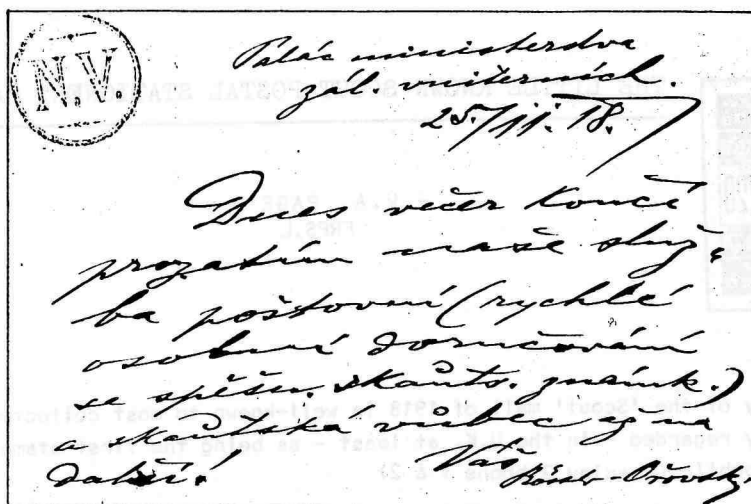 N.V
Palác ministerstva
zál. vniterních
25./11. 18.
Dnes večer končí
prozatím naše služ-
ba poštovní (rychlé
osobní doručování
se spěšn. skauts. známk.)
a skautská vůbec až na
další!
Váš
Rössler-Ořovský